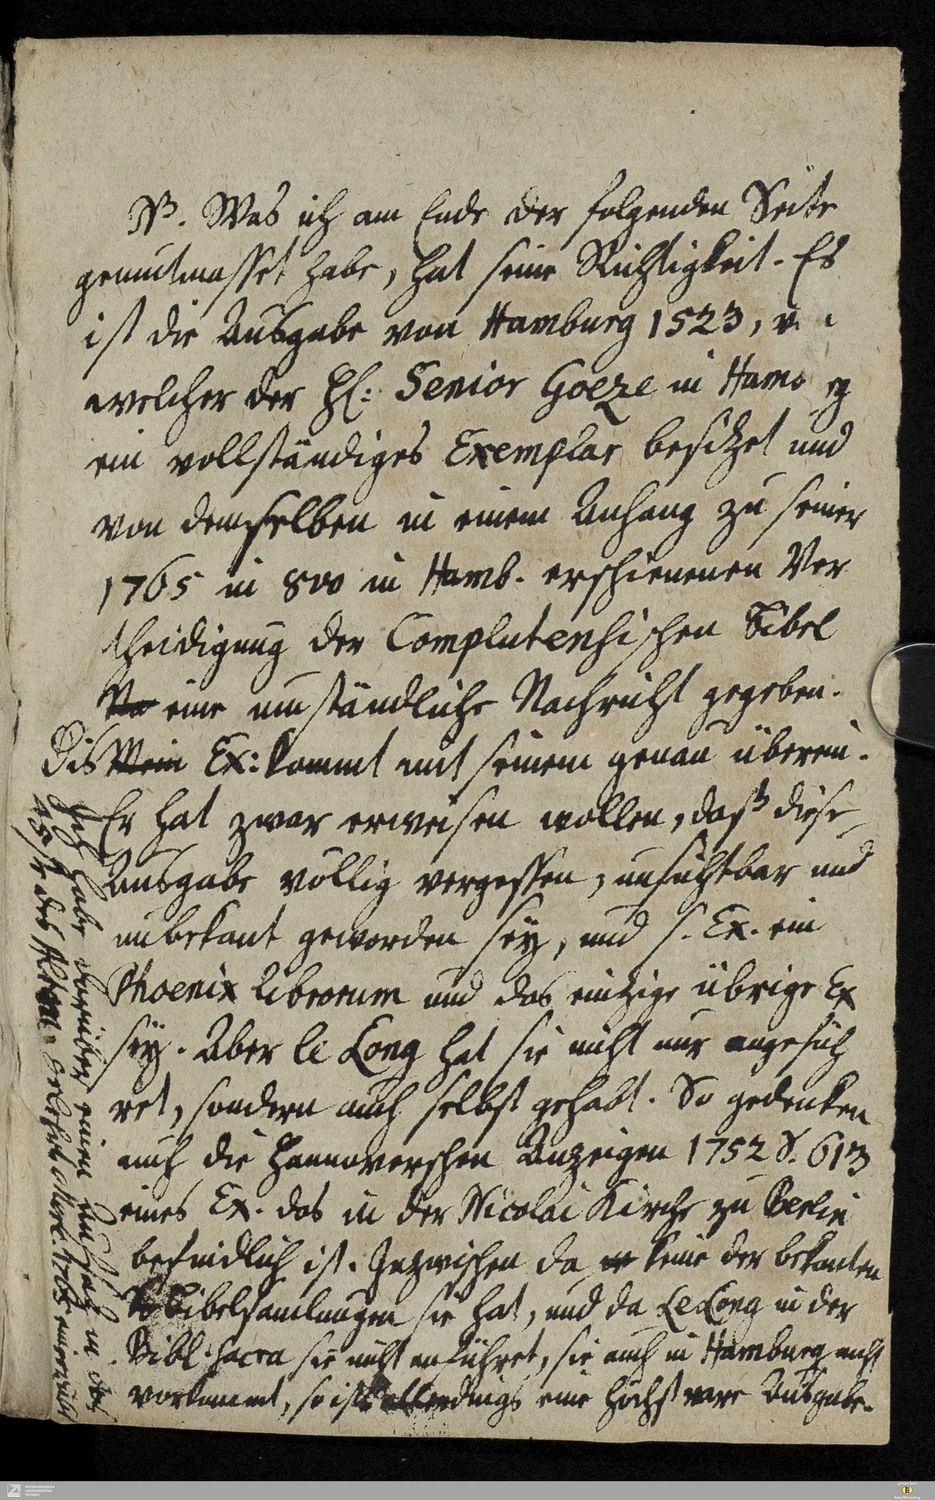 NB. Was ich am Ende der folgenden Seite
gemutmasset habe, hat seine Richtigkeit. Es
ist die Ausgabe von Hamburg 1523, v
welcher der H: Senior Goeze in Ham
ein vollständiges Exemplar besitzet und
von demselben in einem Anhang zu seiner
1765 in 8vo in Hamb. erschienenen Ver
theidigung der Complutensischen Bibel
eine umständliche Nachricht gegeben.
Dis Mein Ex: kommt mit seinem genau überein.
Er hat zwar erweisen wollen, daß diese
Ausgabe völlig vergessen, unsichtbar und
unbekant geworden sey, und s. Ex. ein
Phoenix librorum und das eintzige übrige Ex
sey. Aber le Long hat sie nicht nur angefüh
ret, sondern auch selbst gehabt. So gedenken
auch die Hannoverschen Anzeigen 1752 S. 613
eines Ex. das in der Nicolai Kirche zu Berlin
befindlich ist. Inzwischen da keine der bekanten
Bibelsamlungen sie hat, und da Le Long in der
Bibl. sacra sie nicht anführet, sie auch in Hamburg nicht
vorkommt, so ist allerdings eine höchst rare Ausgabe.
Ich habe darüber einen Aufsatz in das
45ste des Alton. Gelehrt. Merc. 1765 einrückt